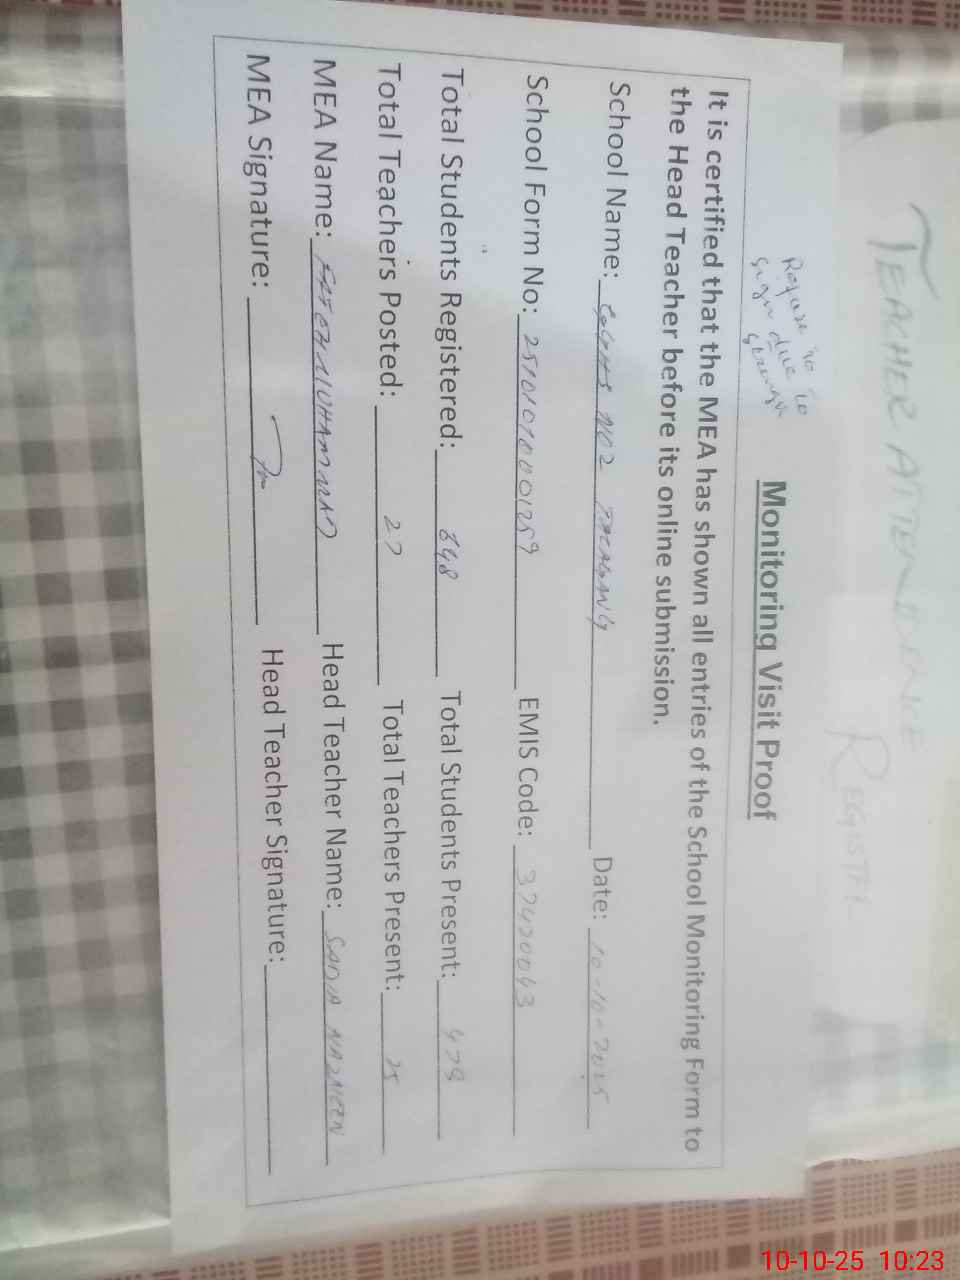 TEACHER ATTENDENCE
REGISTER
Refuse to
sign due to
Monitoring Visit Proof
It is certified that the MEA has shown all entries of the School Monitoring Form to
the Head Teacher before its online submission.
School Name: GGHS NO2 Date: 10-10-2025
School Form No: EMIS Code: 37420043
Total Students Registered: 648 Total Students Present: 479
Total Teachers Posted: 27 Total Teachers Present: 25
MEA Name: Head Teacher Name: SADIA NAZNEEN
MEA Signature: Head Teacher Signature:
10-10-25 10:23